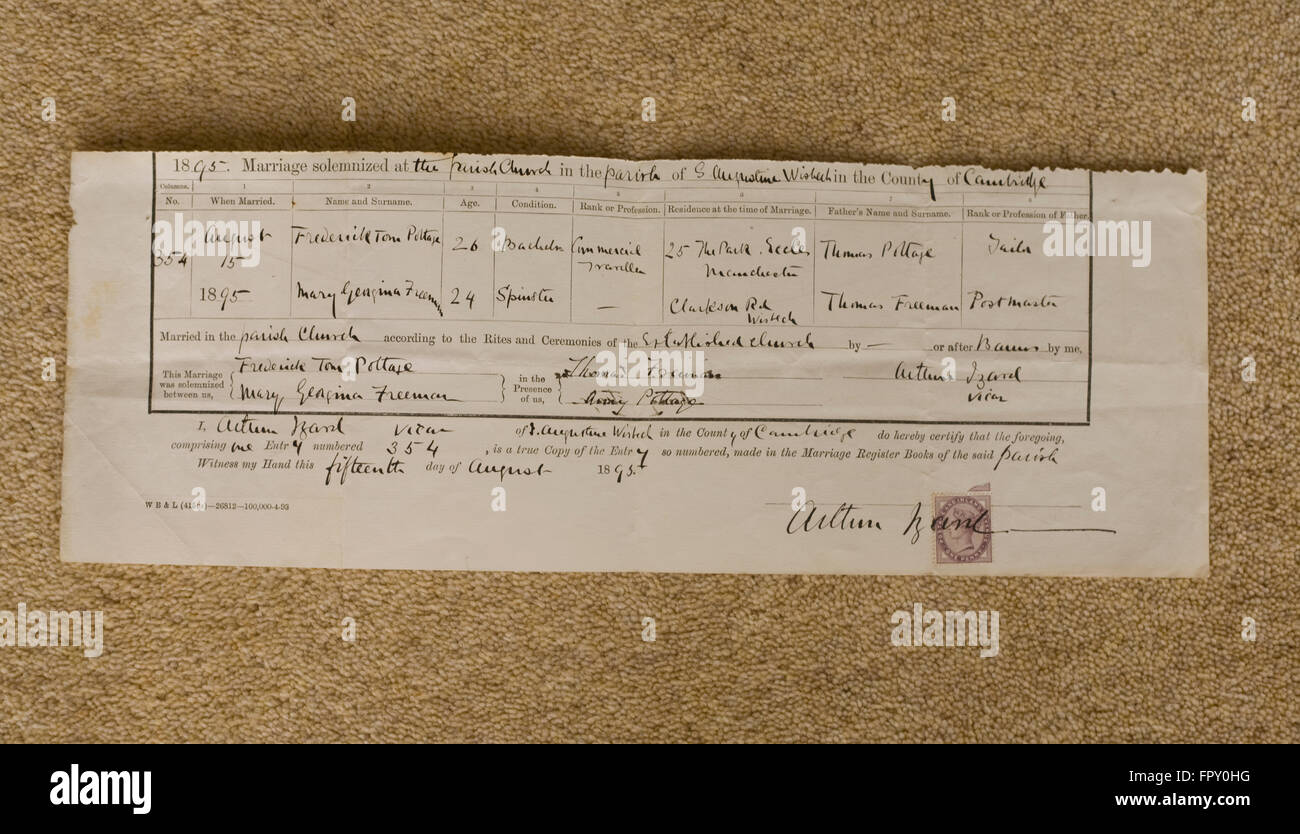 1895. Marriage solemnized at the parish Church in the parish of S Augustine Wisbech in the County of Cambridge
Columns. 1 2 3 4 5 6 7 8
No. When Married. Name and Surname. Age. Condition. Rank or Profession. Residence at the time of Marriage. Father's Name and Surname. Rank or Profession of Father.
354 August 15 1895 Frederick Tom Pottage 26 Bachelor Commercial Traveller 25 The Park. Eccles Manchester Thomas Pottage Tailor
Mary Georgina Freeman 24 Spinster — Clarkson Rd Wisbech Thomas Freeman Postmaster
Married in the parish Church according to the Rites and Ceremonies of the Established Church by — or after Banns by me,
This Marriage was solemnized between us, Frederick Tom Pottage Mary Georgina Freeman in the Presence of us, Thomas Freeman Pottage Arthur Izard Vicar
I, Arthur Izard Vicar of S. Augustine Wisbech in the County of Cambridge do hereby certify that the foregoing,
comprising one Entry numbered 354, is a true Copy of the Entry so numbered, made in the Marriage Register Books of the said parish
Witness my Hand this fifteenth day of August 1895.
W B & L —26812—100,000-4-93
Arthur Izard
alamy stock photo
FPY0HG
www.alamy.com